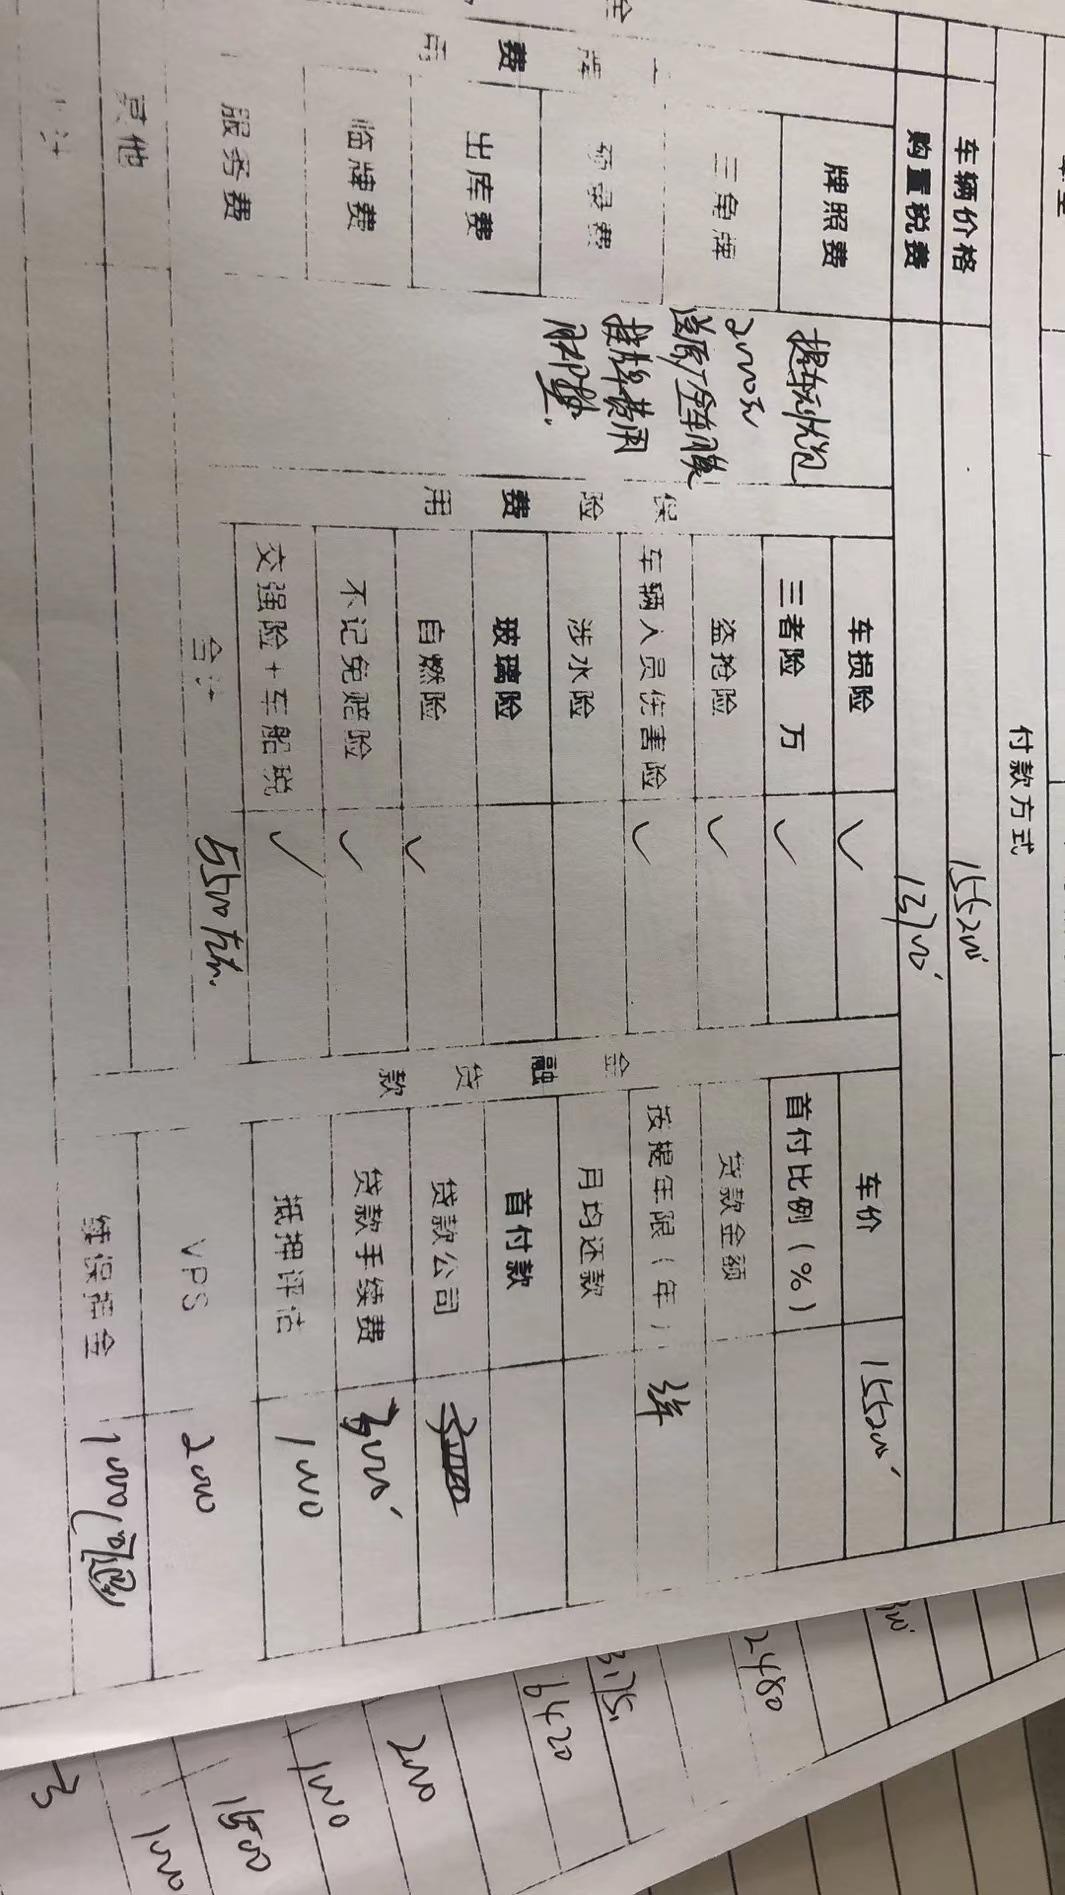 付款方式
车辆价格 155200
购置税费 13700
上牌费用
牌照费
三角牌
出库费
临牌费
服务费
其他
小计
提车无忧包
2000元
送原厂全车膜
挂牌费用
保险费用
车损险 ✓
三者险 万 ✓
盗抢险 ✓
车辆人员伤害险 ✓
涉水险
玻璃险
自燃险 ✓
不记免赔险 ✓
交强险+车船税 ✓
合计 5500左右.
金融贷款
车价 155200
首付比例(%)
贷款金额
按揭年限(年) 3年
月均还款
首付款
贷款公司
贷款手续费 3000
抵押评估 1000
VPS 2000
续保押金 1000/可退
2480
3175
6420
200
1000
1500
1000
3